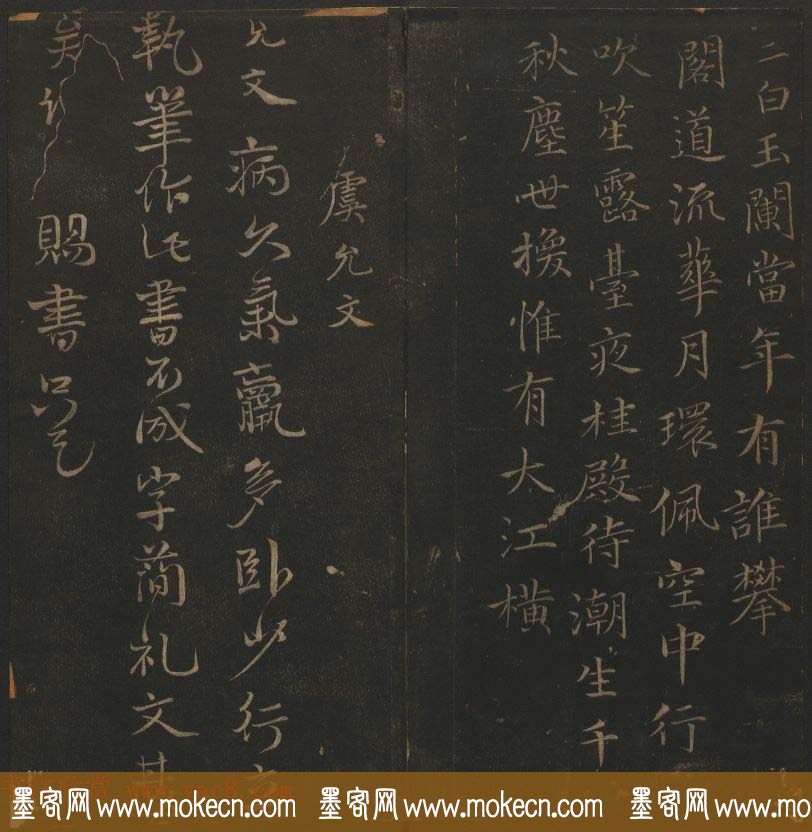 二白玉闌當年有誰攀
閣道流華月環佩空中行
吹笙露臺夜桂殿待潮生千
秋塵世換惟有大江橫
虞允文
允文病久氣羸多臥少行
執筆作此書不成字簡礼文甚
賜書
墨客网 www.mokecn.com 墨客网 www.mokecn.com 墨客网 www.mokecn.com